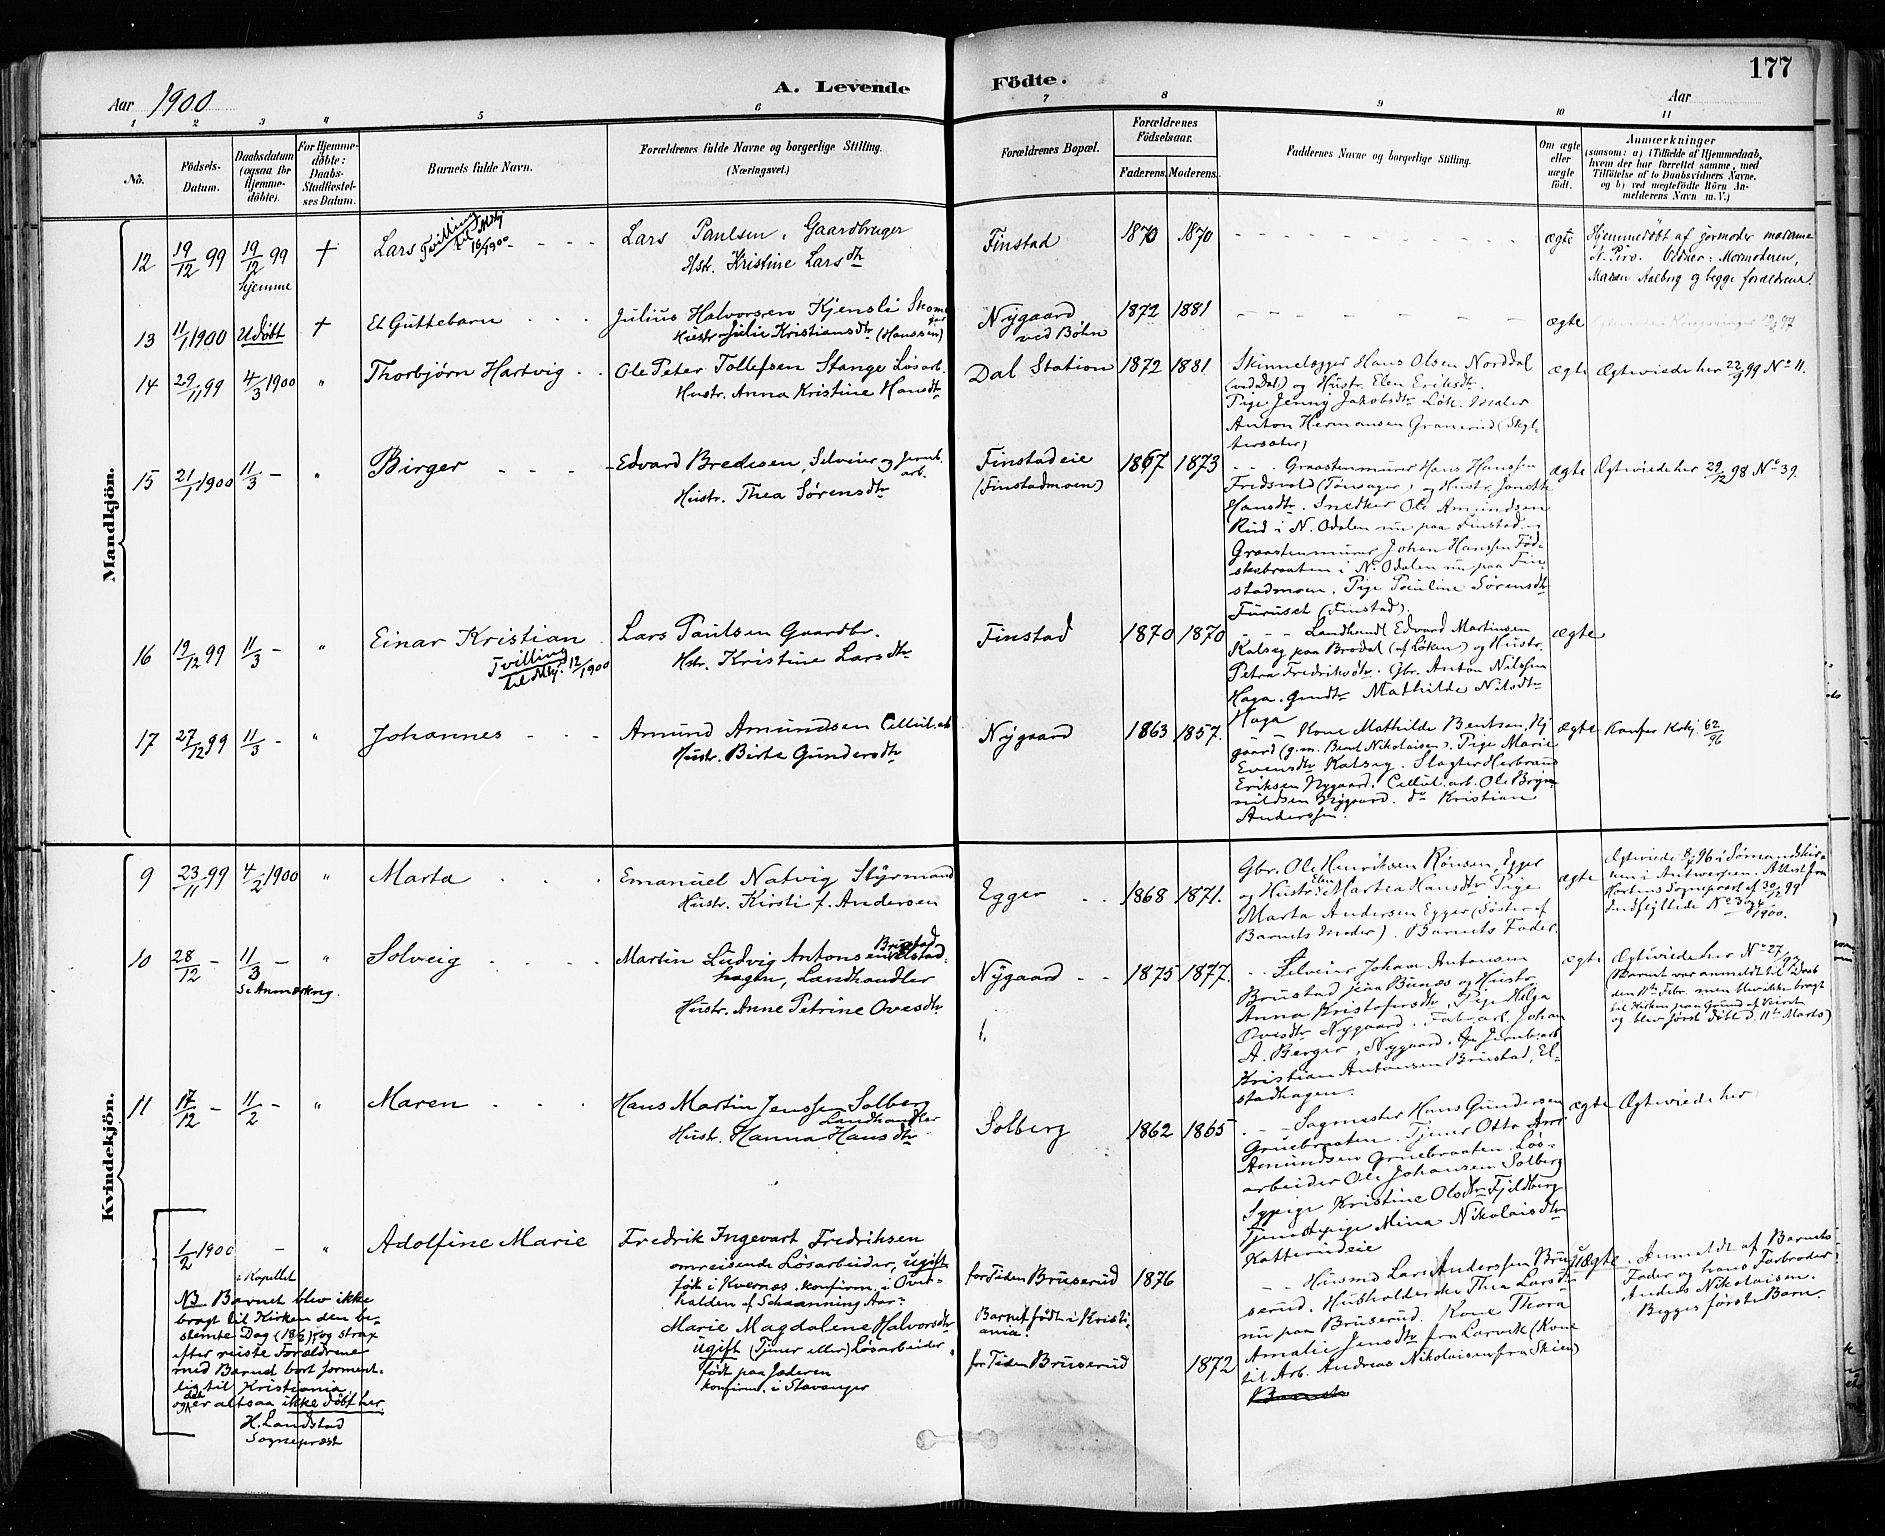 177
A. Levende Födte.
Aar 1900
Aar
1 2 3 4 5 6 7 8 9 10 11
No.
Födsels-Datum.
Daabsdatum (ogsaa for Hjemme-döbte).
For Hjemme-döbte: Daabs-Stadfæstel-ses Datum.
Barnets fulde Navn.
Forældrenes fulde Navne og borgerlige Stilling.
(Næringsvei.)
Forældrenes Bopæl.
Forældrenes Födselsaar.
Faderens. Moderens.
Faddernes Navne og borgerlige Stilling.
Om ægte eller uægte födt.
Anmærkninger
(saasom: a) i Tilfælde af Hjemmedaab,
hvem der har forrettet samme, med
Tilföielse af to Daabsvidners Navne.
og b) ved uægtefödte Börn An-
melderens Navn m. V.)
Mandkjön.
12 19/12 99 19/12 99 hjemme † Lars Tvilling til Mkj 16/1900
Lars Paulsen, Gaardbruger
Hstr. Kristine Larsdtr
Finstad 1870 1870 ægte
Hjemmedøbt af jormoder madame
Vidner: Mormoderen,
Maren Aalborg og begge forældrene.
13 11/1 1900 Udöbt † Et Guttebarn
Julius Halvorsen Kjensli Skom
Hustr Julie Kristiansdtr (Hanssen)
Nygaard
ved Bøhn
1872 1881 ægte
14 29/11 99 4/3 1900 " Thorbjørn Hartvig
Ole Peter Tollefsen Stange Løsarb.
Hustr. Anna Kristine Hansdtr
Dal Station 1872 1881
Skinnelægger Hans Olsen Norddal
(ved Dal) og Hustr. Elen Eriksdtr.
Pige Jenny Jakobsdtr Løk. Maler
Anton Hermansen Granerud (Skyt-
tersæter)
ægte Ægteviede her 22/9 99 No 11.
15 21/1 1900 11/3 - " Birger
Edvard Bredesen, Selveier og Jernb. arb.
Hustr. Thea Sørensdtr
Finstadeie
(Finstadmoen)
1867 1873
Graastenmurer Hans Hanssen
Fredsvold (Tønsager) og Hustr. Janette
Hansdtr. Snedker Ole Amundsen
Rud i N. Odalen nu paa Finstad.
Graastenmurer Johan Hanssen Fød-
skebraaten i N. Odalen nu paa Fin-
stadmoen. Pige Pauline Sørensdtr
Furuset (Finstad).
ægte Ægteviede her 29/12 98 No 39.
16 19/12 99 11/3 - " Einar Kristian
Tvilling
til Mkj. 12/1900
Lars Paulsen Gaardbr.
Hstr. Kristine Larsdtr
Finstad 1870 1870
Landhandl Edvard Martinsen
Kalseg paa Brodal (af Løken) og Hustr.
Petra Fredriksdtr. Gbr. Anton Nilssen
Haga. Gmdtr Mathilde Nilsdtr
Haga
ægte
17 27/12 99 11/3 - " Johannes
Amund Amundsen Cellul. arb
Hustr. Birte Gundersdtr
Nygaard 1863 1857.
Kone Mathilde Bentsen, Ny
gaard (g.m. Bernt Nikolaisen). Pige Marie
Evensdtr Kalseg. Slagter Herbrand
Eriksen Nygaard. Cellul. arb. Ole Bryn-
nildsen Nygaard. do Kristian
Anderssen.
ægte Kanfer Kvkj. 62/96
Kvindekjön.
9 23/11 99 4/2 1900 " Marta
Emanuel Natvig Styrmand
Hustr. Kirsti f. Andersen
Egger 1868 1871.
Gbr. Ole Henriksen Rønsen, Egger
og Hustr. Elen Martea Hansdtr Pige
Marta Andersen Egger (Søster af
Barnets Moder). Barnets Fader.
ægte
Ægteviede 8/9 96 i Sømandskirk
en i Antwerpen. Attest fra
Hortens Sogneprest af 30/12 99
10 28/12 - 11/3 - " Solveig
Se Anmærkng.
Martin Ludvig Antonsen Brustad
hagen, Landhandler
Hustr. Anne Petrine Ovesdtr
Nygaard 1875 1877.
Selveier Johan Antonsen
Brustad paa Bunæs og Hustr.
Anna Kristofersdtr. Pige Helga
Ovesdtr Nygaard. Fabr. arb. Johan
A. Berger, Nygaard. Jernb. arb
Kristian Antonsen Brustad, El-
stadhagen.
ægte
Ægteviede her No 27/97
(Barnet var anmeldt til Daab
den 11te Febr. men blev ikke bragt
til Kirken paa Grund af Veiret
og blev først døbt d. 11te Marts)
11 17/12 - 11/2 - " Maren
Hans Martin Jenssen Solberg
Landhandler
Hustr. Hanna Hansdtr
Solberg 1862 1865
Sagmester Hans Gundersen
Gruebraaten. Tjener Otto
Amundsen Gruebraaten. Løs-
arbeider Ole Johansen Solberg
Sypige Kristine Olsdtr Fjeldberg
Tjenestepige Mina Nikolaisdtr
Katterudeie
ægte Ægteviede her
1/2 1900 - " Adolfine Marie
Fredrik Ingevart Fredriksen
omreisende Løsarbeider, ugift
født i Kvernes. konfirm. i Over-
halden af Schaanning Aar?
Marie Magdalene Halvorsdtr
ugift (Tjener eller) Løsarbeider
født paa Jæderen
konfirm. i Stavanger
for Tiden Bruserud 1876
Barnet født i Kristi-
ania.
for Tiden Bruserud 1872
Husmd Lars Anderssen Bru-
serud. Husholderske Thea Larsdtr
nu paa Bruserud. Kone Thora
Amalie Jensdtr fra Larvik (Kone
til Arb. Andreas Nikolaisen fra Skien)
uægte
Anmeldt af Barnets
Fader og hans Farbroder
Anders Nikolaisen.
Begges første Barn.
i Kapellet
NB Barnet blev ikke
bragt til Kirken den be-
stemte Dag (18/2) og strax
efter reiste Forældrene
med Barnet bort forment-
lig til Kristiania
og det er altsaa ikke døbt her.
H. Landstad
Sogneprest